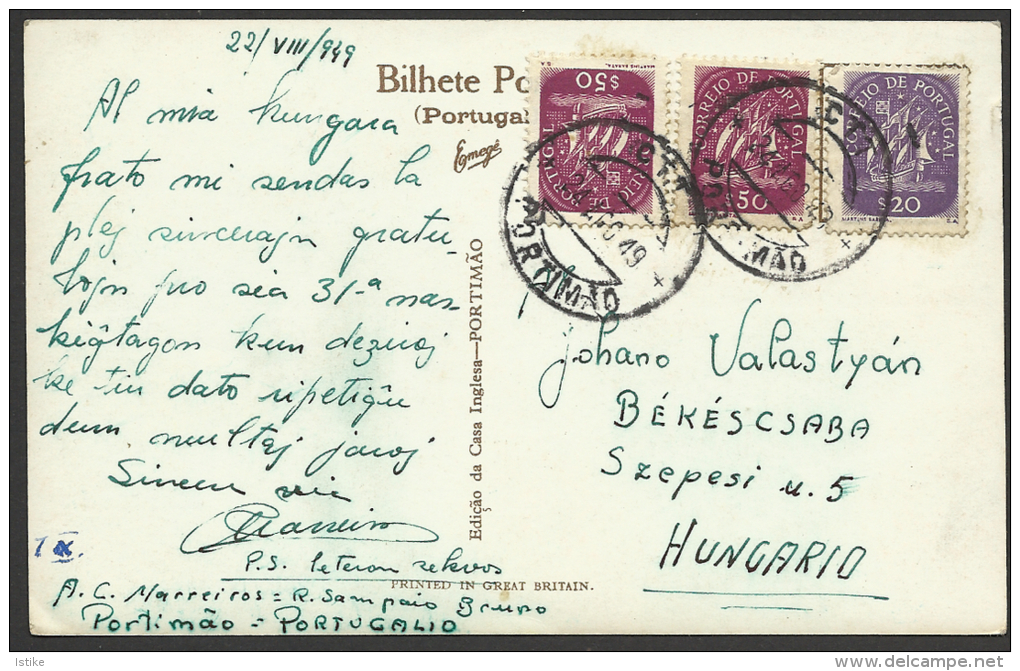 22/VIII/949
Al mia hungara
frato mi sendas la
plej sincerajn gratu
lojn pro sia 31-a nas
kiĝtagon kun deziroj
ke tiu dato ripetiĝu
dum multaj jaroj
Sincere via
P.S. leteron sekvos
A. C. Marreiros = R. Sampaio Bruno
Portimão - PORTUGALIO
Bilhete Po
(Portugal
Emegê
Edição da Casa Inglesa—PORTIMÃO
PRINTED IN GREAT BRITAIN.
$50
CORREIO DE PORTUGAL
$50
CORREIO DE PORTUGAL
$20
PORTIMÃO
PORTIMÃO
Johano Valastyán
BÉKÉSCSABA
Szepesi u. 5
HUNGARIO
Istike
www.delcampe.net